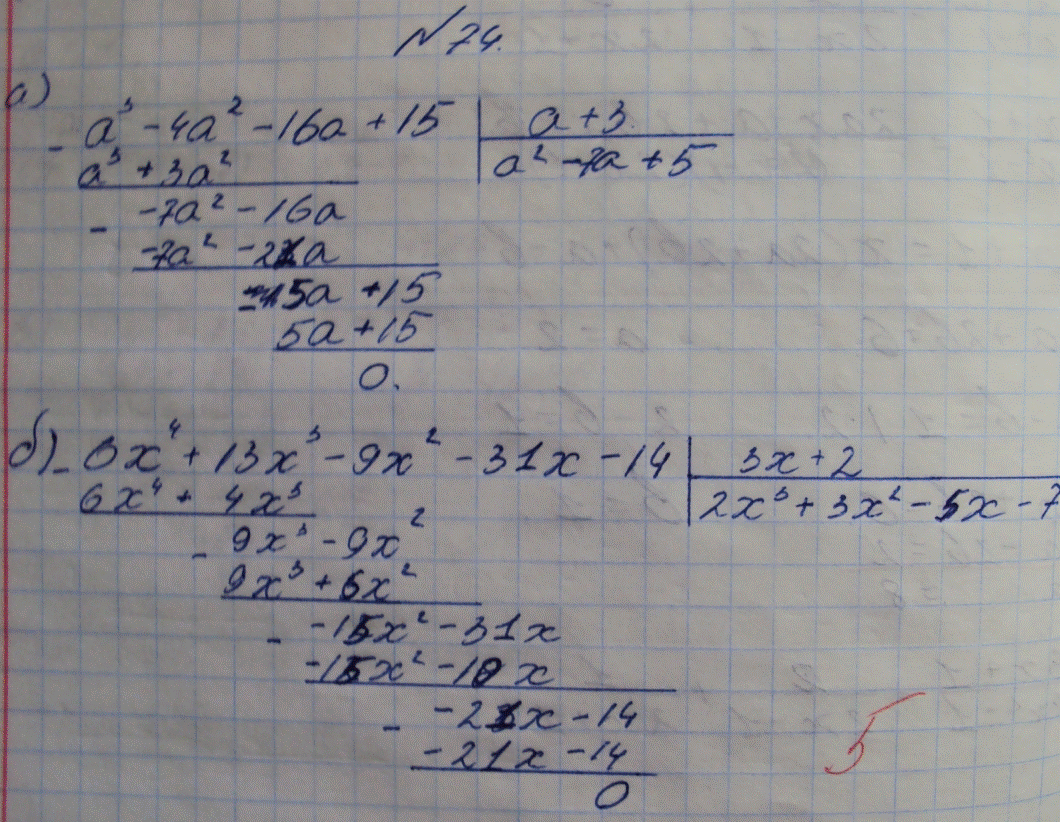 №74.
а)
a³ - 4a² - 16a + 15 | a + 3
a³ + 3a² | a² - 7a + 5
- -7a² - 16a
-7a² - 21a
5a + 15
5a + 15
0.
б) - 6x⁴ + 13x³ - 9x² - 31x - 14 | 3x + 2
6x⁴ + 4x³ | 2x³ + 3x² - 5x - 7
- 9x³ - 9x²
9x³ + 6x²
- -15x² - 31x
-15x² - 10x
- -21x - 14
-21x - 14
0
5